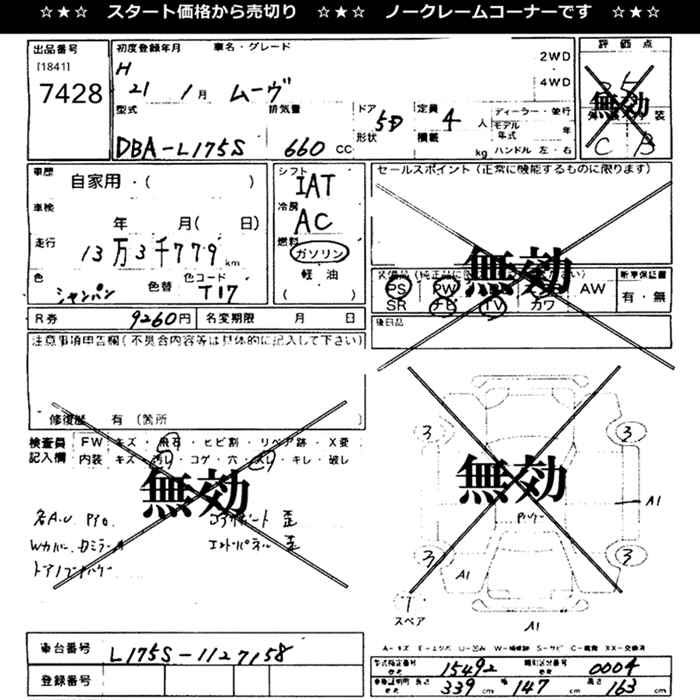 ☆★☆ スタート価格から売切り ☆★☆ ノークレームコーナーです ☆★☆
出品番号
[1841]
7428
初度登録年月 車名・グレード
H 21 1月 ムーヴ
2WD
4WD
型式 排気量 ドア 形状 定員 積載
DBA-L175S 660 CC 5D 4 人 kg
ディーラー・並行
モデル年式 年
ハンドル 左・右
評価点
3.5
無効
C B
車歴 自家用・( )
車検 年 月( 日)
走行 13万3千779 km
色 シャンパン 色替 色コード T17
シフト IAT
冷房 AC
燃料 ガソリン
軽油
( )
セールスポイント(正常に機能するものに限ります)
無効
PS PW AW
SR ナビ TV カワ
新車保証書
有・無
後日品
R券 9260円 名変期限 月 日
注意事項申告欄(不具合内容等は具体的に記入して下さい)
修復歴 有 (箇所 )
検査員記入欄
FW キズ・飛石・ヒビ割・リペア跡・X要
内装 キズ・汚レ・コゲ・穴・スレ・キレ・破レ
無効
無効
3 3
A1
3 3
A1
スペア
A1
A-キズ E-エクボ U-凹み W-補修跡 S-サビ C-腐食 XX-交換済
車台番号 L175S-1127158
登録番号
型式指定番号 15492 類別区分番号 0004
長さ 339 cm 幅 147 cm 高さ 163 cm